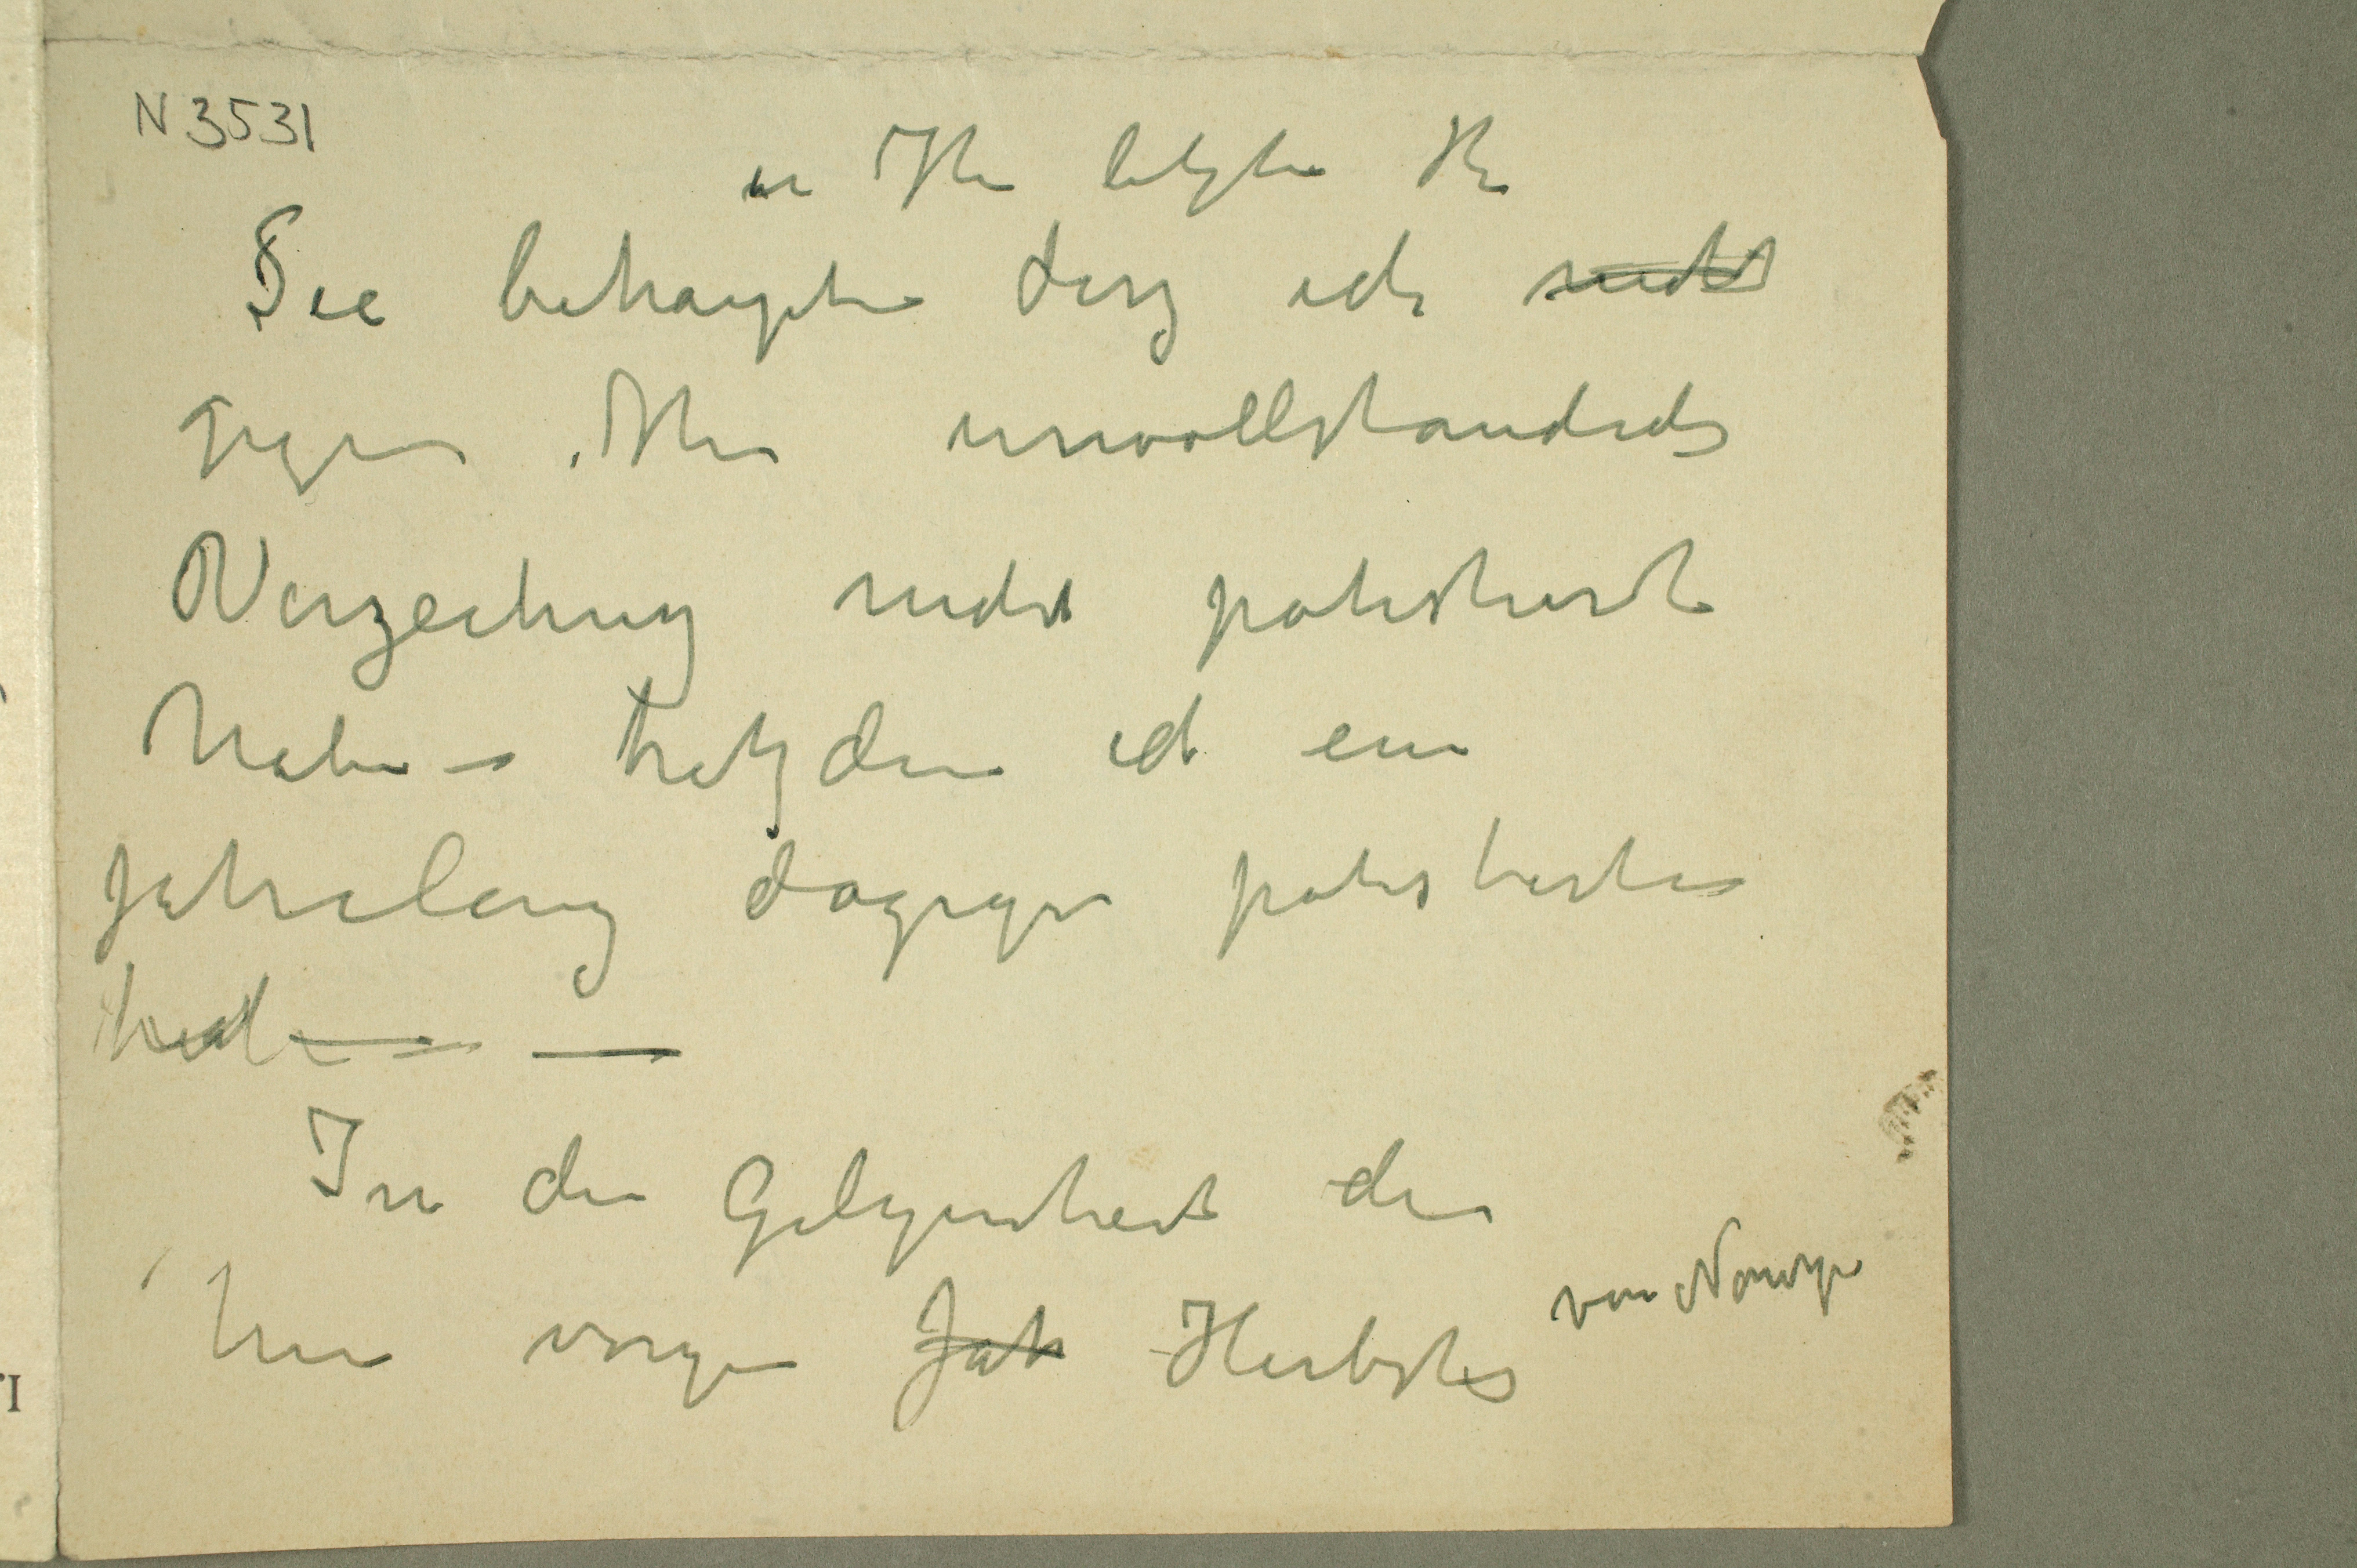 N 3531
in Ihre letzte
Sie behaupten dasz ich nicht
gegen Ihre unvollstandich
Verzeichung nicht protestiert
haben – trotzdem ich ein
Jahrelang dagegen protestierten
habe — —
In der Gelegenheit der
hier vorgen Jah Herbstes von Norwge